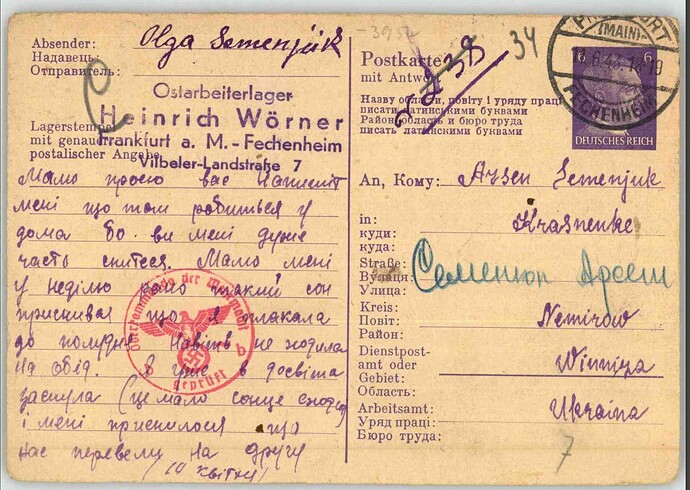 Absender:
Надавець:
Отправитель:
Olga Semenjuk
Ostarbeiterlager
Heinrich Wörner
Frankfurt a. M.-Fechenheim
Vilbeler-Landstraße 7
Lagerstempel
mit genauer
postalischer Angabe
Мамо прошу вас напишіт
мені що там робиться у
дома бо ви мені дуже
часто снитеся. Мамо мені
у неділю рано такий сон
приснився що я плакала
до полудня. Навіть не ходила
на обід. в уже в досвіта
заснула (це мало сонце сходит)
і мені приснилося що
нас перевели на другу
(10 квітня)
Oberkommando der Wehrmacht
geprüft
b
Postkarte
mit Antwort
34
Назву области, повіту і уряду праці
писати латинськими буквами
Район, область и бюро труда
писать латинскими буквами
(MAIN)
6.43-18
FECHENHEIM
6 6
DEUTSCHES REICH
An, Кому: Arsen Semenjuk
in:
куди:
куда:
Krasnenke
Straße:
Вулиця:
Улица:
Семенюк Арсен
Kreis:
Повіт:
Район:
Nemirow
Dienstpost-
amt oder
Gebiet:
Область:
Winniza
Arbeitsamt:
Уряд праці:
Бюро труда:
Ukraina
7